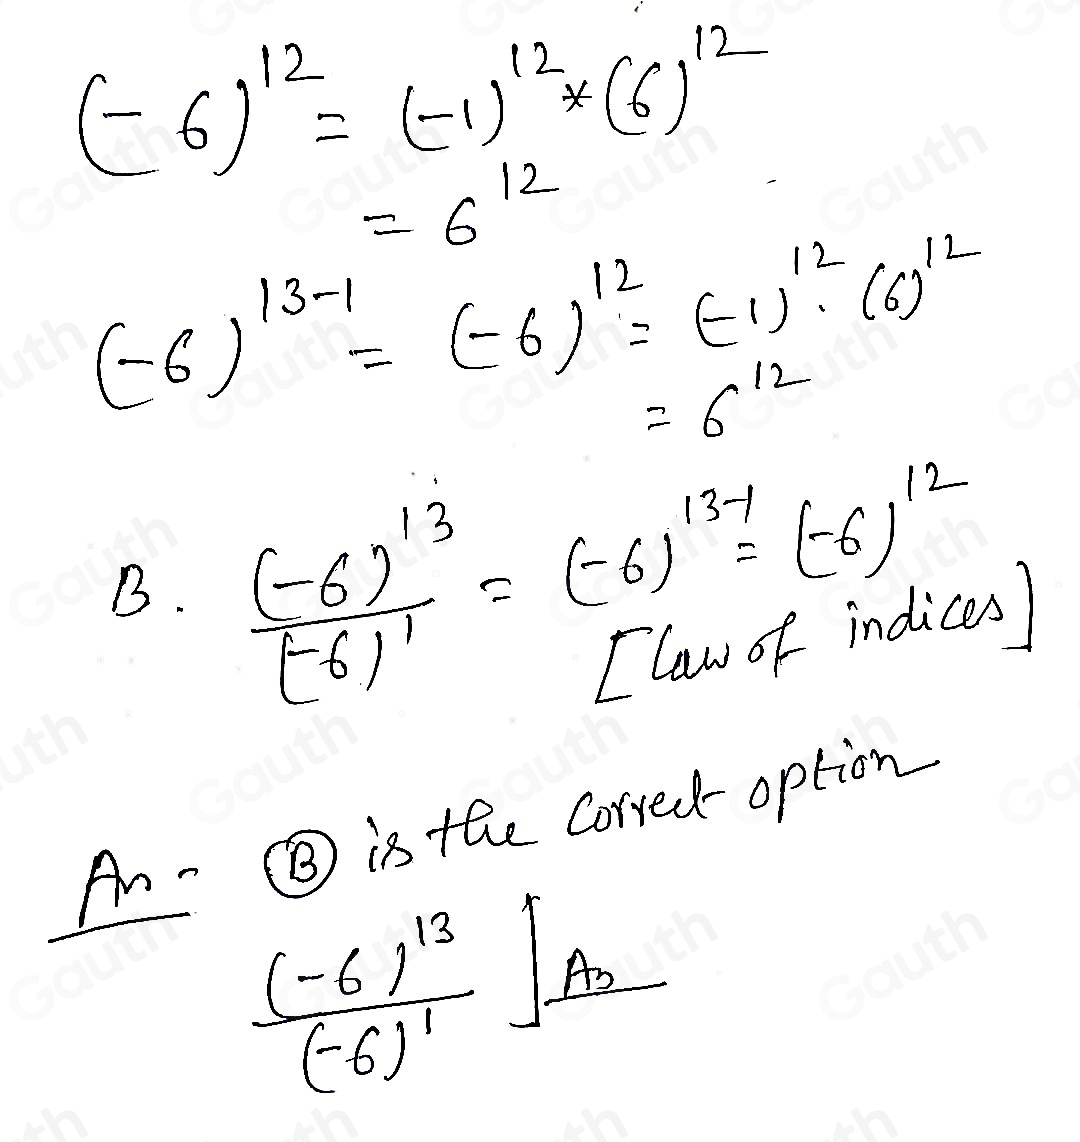 (-6)^12 = (-1)^12 * (6)^12
= 6^12
(-6)^13-1 = (-6)^12 = (-1)^12 . (6)^12
= 6^12
B. (-6)^13 / (-6)^1 = (-6)^13-1 = (-6)^12
[law of indices]
An - B is the correct option
(-6)^13 / (-6)^1 ] An
Gauth